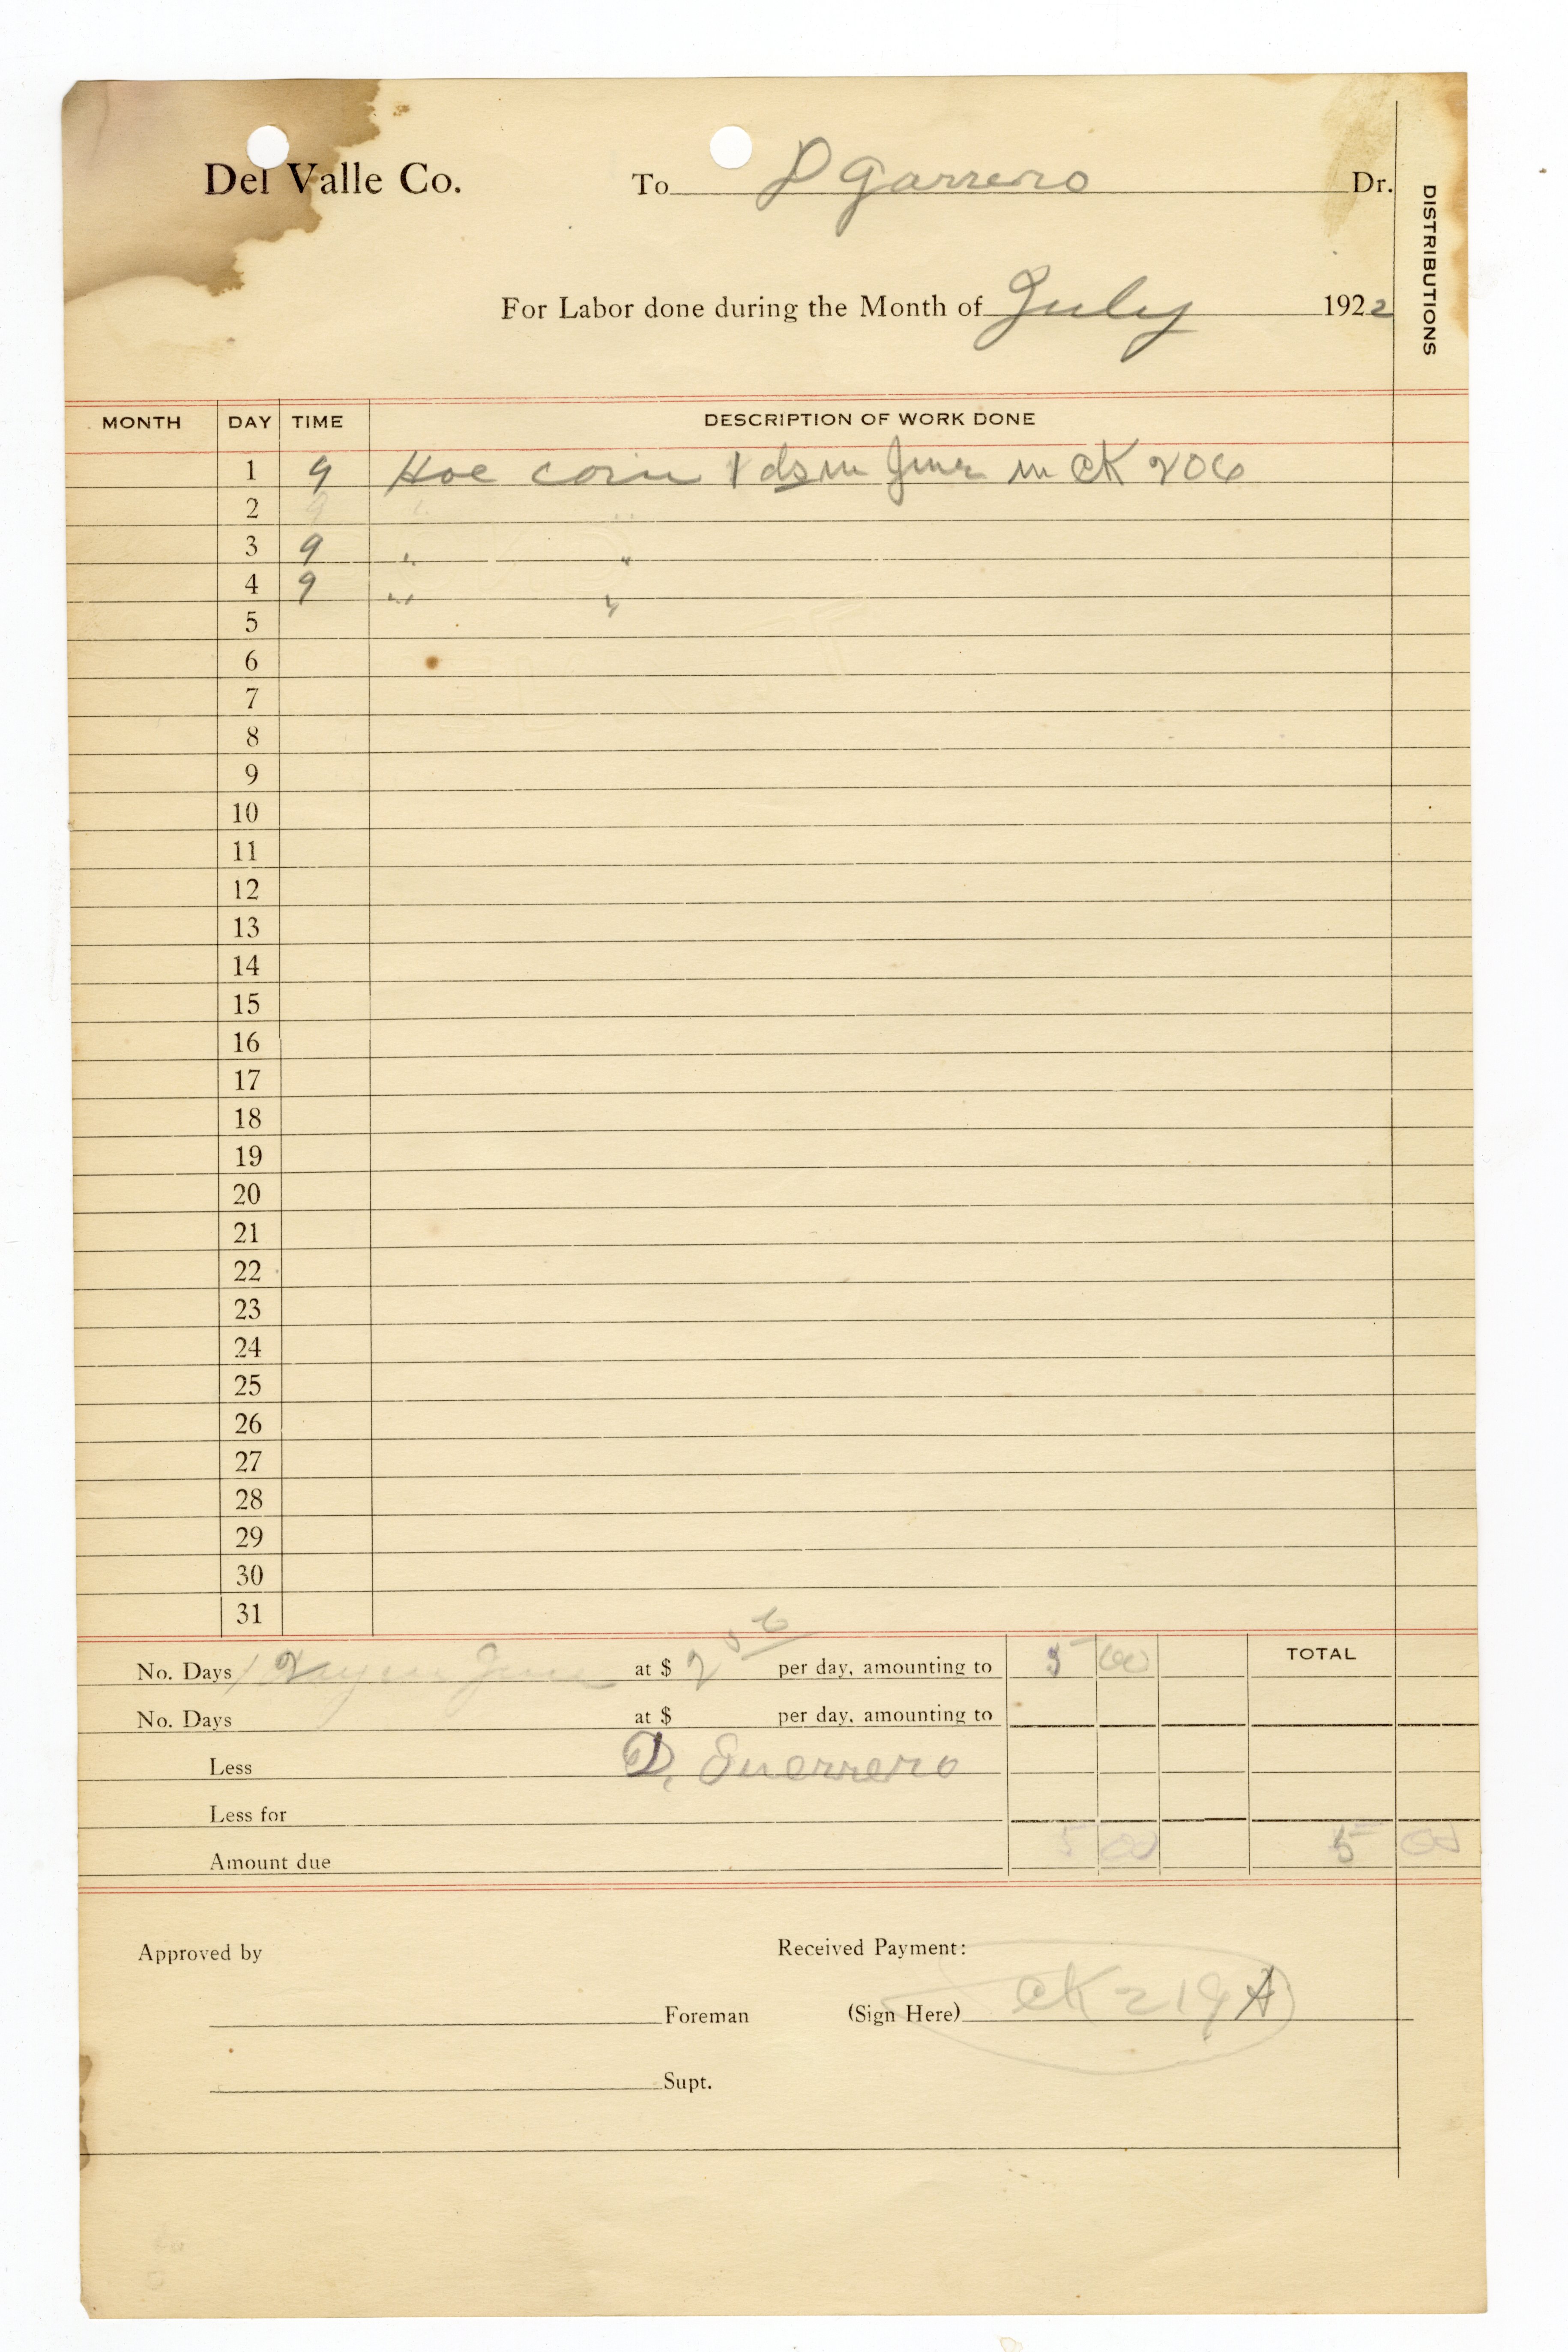 Del Valle Co. To D Garrero Dr.
DISTRIBUTIONS
For Labor done during the Month of July 1922
MONTH DAY TIME DESCRIPTION OF WORK DONE
1 9 Hoe corn 1 ds in June in CK 206
2 9 " "
3 9 " "
4 9 " "
5
6
7
8
9
10
11
12
13
14
15
16
17
18
19
20
21
22
23
24
25
26
27
28
29
30
31
No. Days in June at $ 2 50 per day, amounting to 5 00 TOTAL
No. Days at $ per day, amounting to
Less D. Guerrero
Less for
Amount due 5 00 5 00
Approved by Received Payment:
Foreman (Sign Here) CK 219 A
Supt.